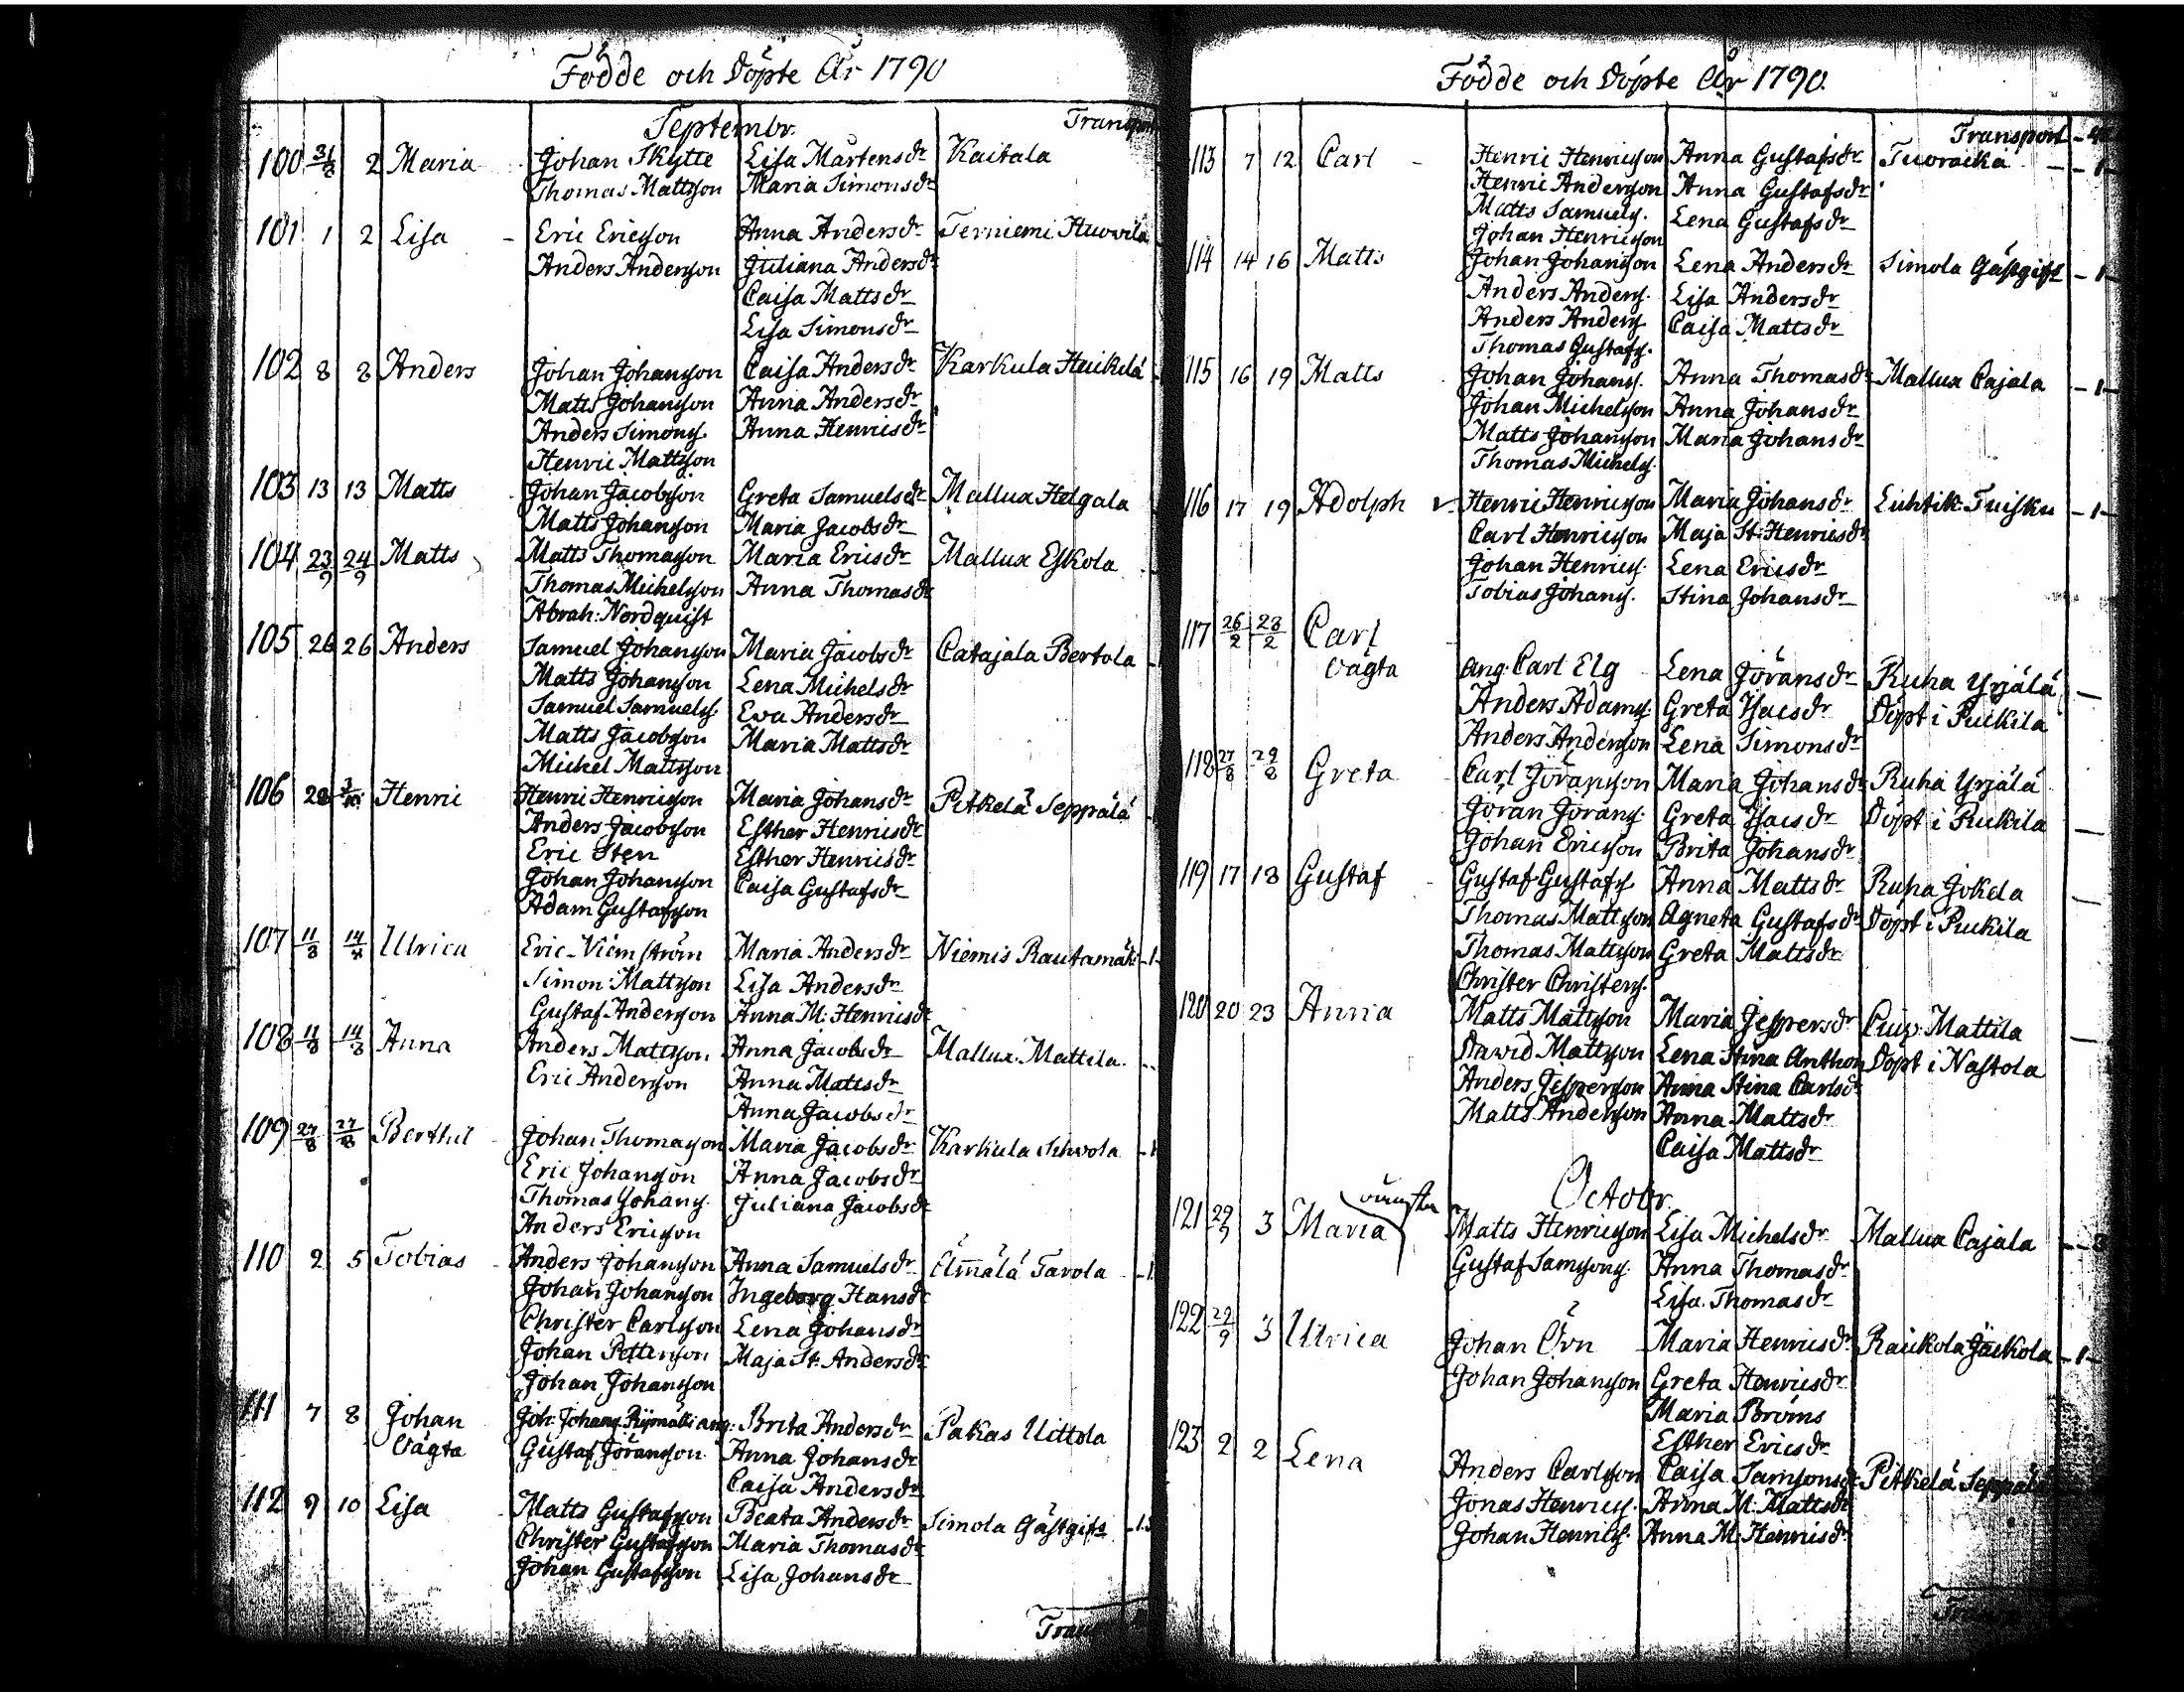 Födde och Döpte År 1790
Septembr. Transport
100 31/8 2 Maria Johan Skytte Lisa Mårtensdr Kaitala
Thomas Mattsson Maria Simonsdr
101 1 2 Lisa Eric Ericsson Anna Andersdr Terniemi Huovila
Anders Andersson Juliana Andersdr
Caisa Mattsdr
Lisa Simonsdr
102 8 8 Anders Johan Johansson Caisa Andersdr Karkula Heikilä
Matts Johansson Anna Andersdr
Anders Simons. Anna Henricsdr
Henric Mattsson
103 13 13 Matts Johan Jacobsson Greta Samuelsdr Mallux Helgala
Matts Johansson Maria Jacobsdr
104 23/9 24/9 Matts Matts Thomasson Maria Ericsdr Mallux Eskola
Thomas Michelsson Anna Thomasdr
Abrah: Nordquist
105 26 26 Anders Samuel Johansson Maria Jacobsdr Catajala Bertola
Matts Johansson Lena Michelsdr
Samuel Samuels. Eva Andersdr
Matts Jacobsson Maria Mattsdr
Michel Mattsson
106 28 3/10 Henric Henric Henricsson Maria Johansdr Pitkelä Seppälä
Anders Jacobsson Esther Henricsdr
Eric Sten Esther Henricsdr
Johan Johansson Caisa Gustafsdr
Adam Gustafsson
107 11/8 14/8 Ulrica Eric Maria Andersdr Niemis Rautamäki -1-
Simon Mattsson Lisa Andersdr
Gustaf Andersson Anna M: Henricsdr
108 11/8 14/8 Anna Anders Mattsson Anna Jacobsdr Mallux Mattila
Eric Andersson Anna Mattsdr
Anna Jacobsdr
109 27/8 27/8 Berthil Johan Thomasson Maria Jacobsdr Karkula -1
Eric Johansson Anna Jacobsdr
Thomas Johans. Juliana Jacobsdr
Anders Ericsson
110 2 5 Tobias Anders Johansson Anna Samuelsdr Ämälä Tavola -1
Johan Johansson Ingeborg Hansdr
Christer Carlsson Lena Johansdr
Johan Pettersson Maja St: Andersdr
Johan Johansson
111 7 8 Johan Joh: Johans. Brita Andersdr Pakas Uittola
Oägta Gustaf Göransson Anna Johansdr
Caisa Andersdr
112 9 10 Lisa Matts Gustafsson Beata Andersdr Simola Gästgifs -1
Christer Gustafsson Maria Thomasdr
Johan Gustafsson Lisa Johansdr
Födde och Döpte År 1790.
Transport
113 7 12 Carl Henric Henricsson Anna Gustafsdr Tuoraika -1-
Henric Andersson Anna Gustafsdr
Matts Samuels. Lena Gustafsdr
Johan Henricsson
114 14 16 Matts Johan Johansson Lena Andersdr Simola Gästgifs -1-
Anders Anders. Lisa Andersdr
Anders Anders. Caisa Mattsdr
Thomas Gustafs.
115 16 19 Matts Johan Johans. Anna Thomasdr Mallux Cajala -1-
Johan Michelsson Anna Johansdr
Matts Johansson Maria Johansdr
Thomas Michels.
116 17 19 Adolph Henric Henricsson Maria Johansdr Luhtik: Tuisku -1-
Carl Henricsson Maja St: Henricsdr
Johan Henrics. Lena Ericsdr
Tobias Johans. Stina Johansdr
117 26/2 28/2 Carl
Oägta ang: Carl Elg Lena Göransdr Ruha Yrjälä
Anders Adams. Greta Isacsdr Döpt i Pukila
Anders Andersson Lena Simonsdr
118 27/8 29/8 Greta Carl Göransson Maria Johansdr Ruha Yrjälä
Göran Görans. Greta Isacsdr Döpt i Pukila
Johan Ericsson Brita Johansdr
119 17 18 Gustaf Gustaf Gustafs. Anna Mattsdr Ruha Jokela
Thomas Mattsson Agneta Gustafsdr Döpt i Pukila
Thomas Mattsson Greta Mattsdr
Christer Christers.
120 20 23 Anna Matts Mattsson Maria Jespersdr Mattila
David Mattsson Lena Stina Anthon Döpt i Nastola
Anders Jespersson Anna Stina Carlsdr
Matts Andersson Anna Mattsdr
Caisa Mattsdr
Octobr.
121 29/9 3 Maria Matts Henricsson Lisa Michelsdr Mallux Cajala
Gustaf Samsons. Anna Thomasdr
Lisa Thomasdr
122 29/9 3 Ulrica Johan Örn Maria Henricsdr Raikola Jäikola -1-
Johan Johansson Greta Henricsdr
Maria Bröms
Esther Ericsdr
123 2 2 Lena Anders Carlsson Caisa Samsonsdr Pitkelä Seppälä
Jonas Henrics. Anna M: Mattsdr
Johan Henrics. Anna M: Henricsdr